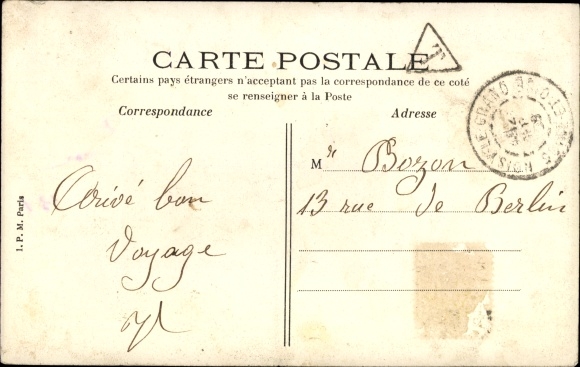 CARTE POSTALE
T
Certains pays étrangers n'acceptant pas la correspondance de ce coté
se renseigner à la Poste
Correspondance
Adresse
Arivé bon
Voyage
Mr Bozon
13 rue de Berlin
I. P. M. Paris
NOISY-LE-GRAND